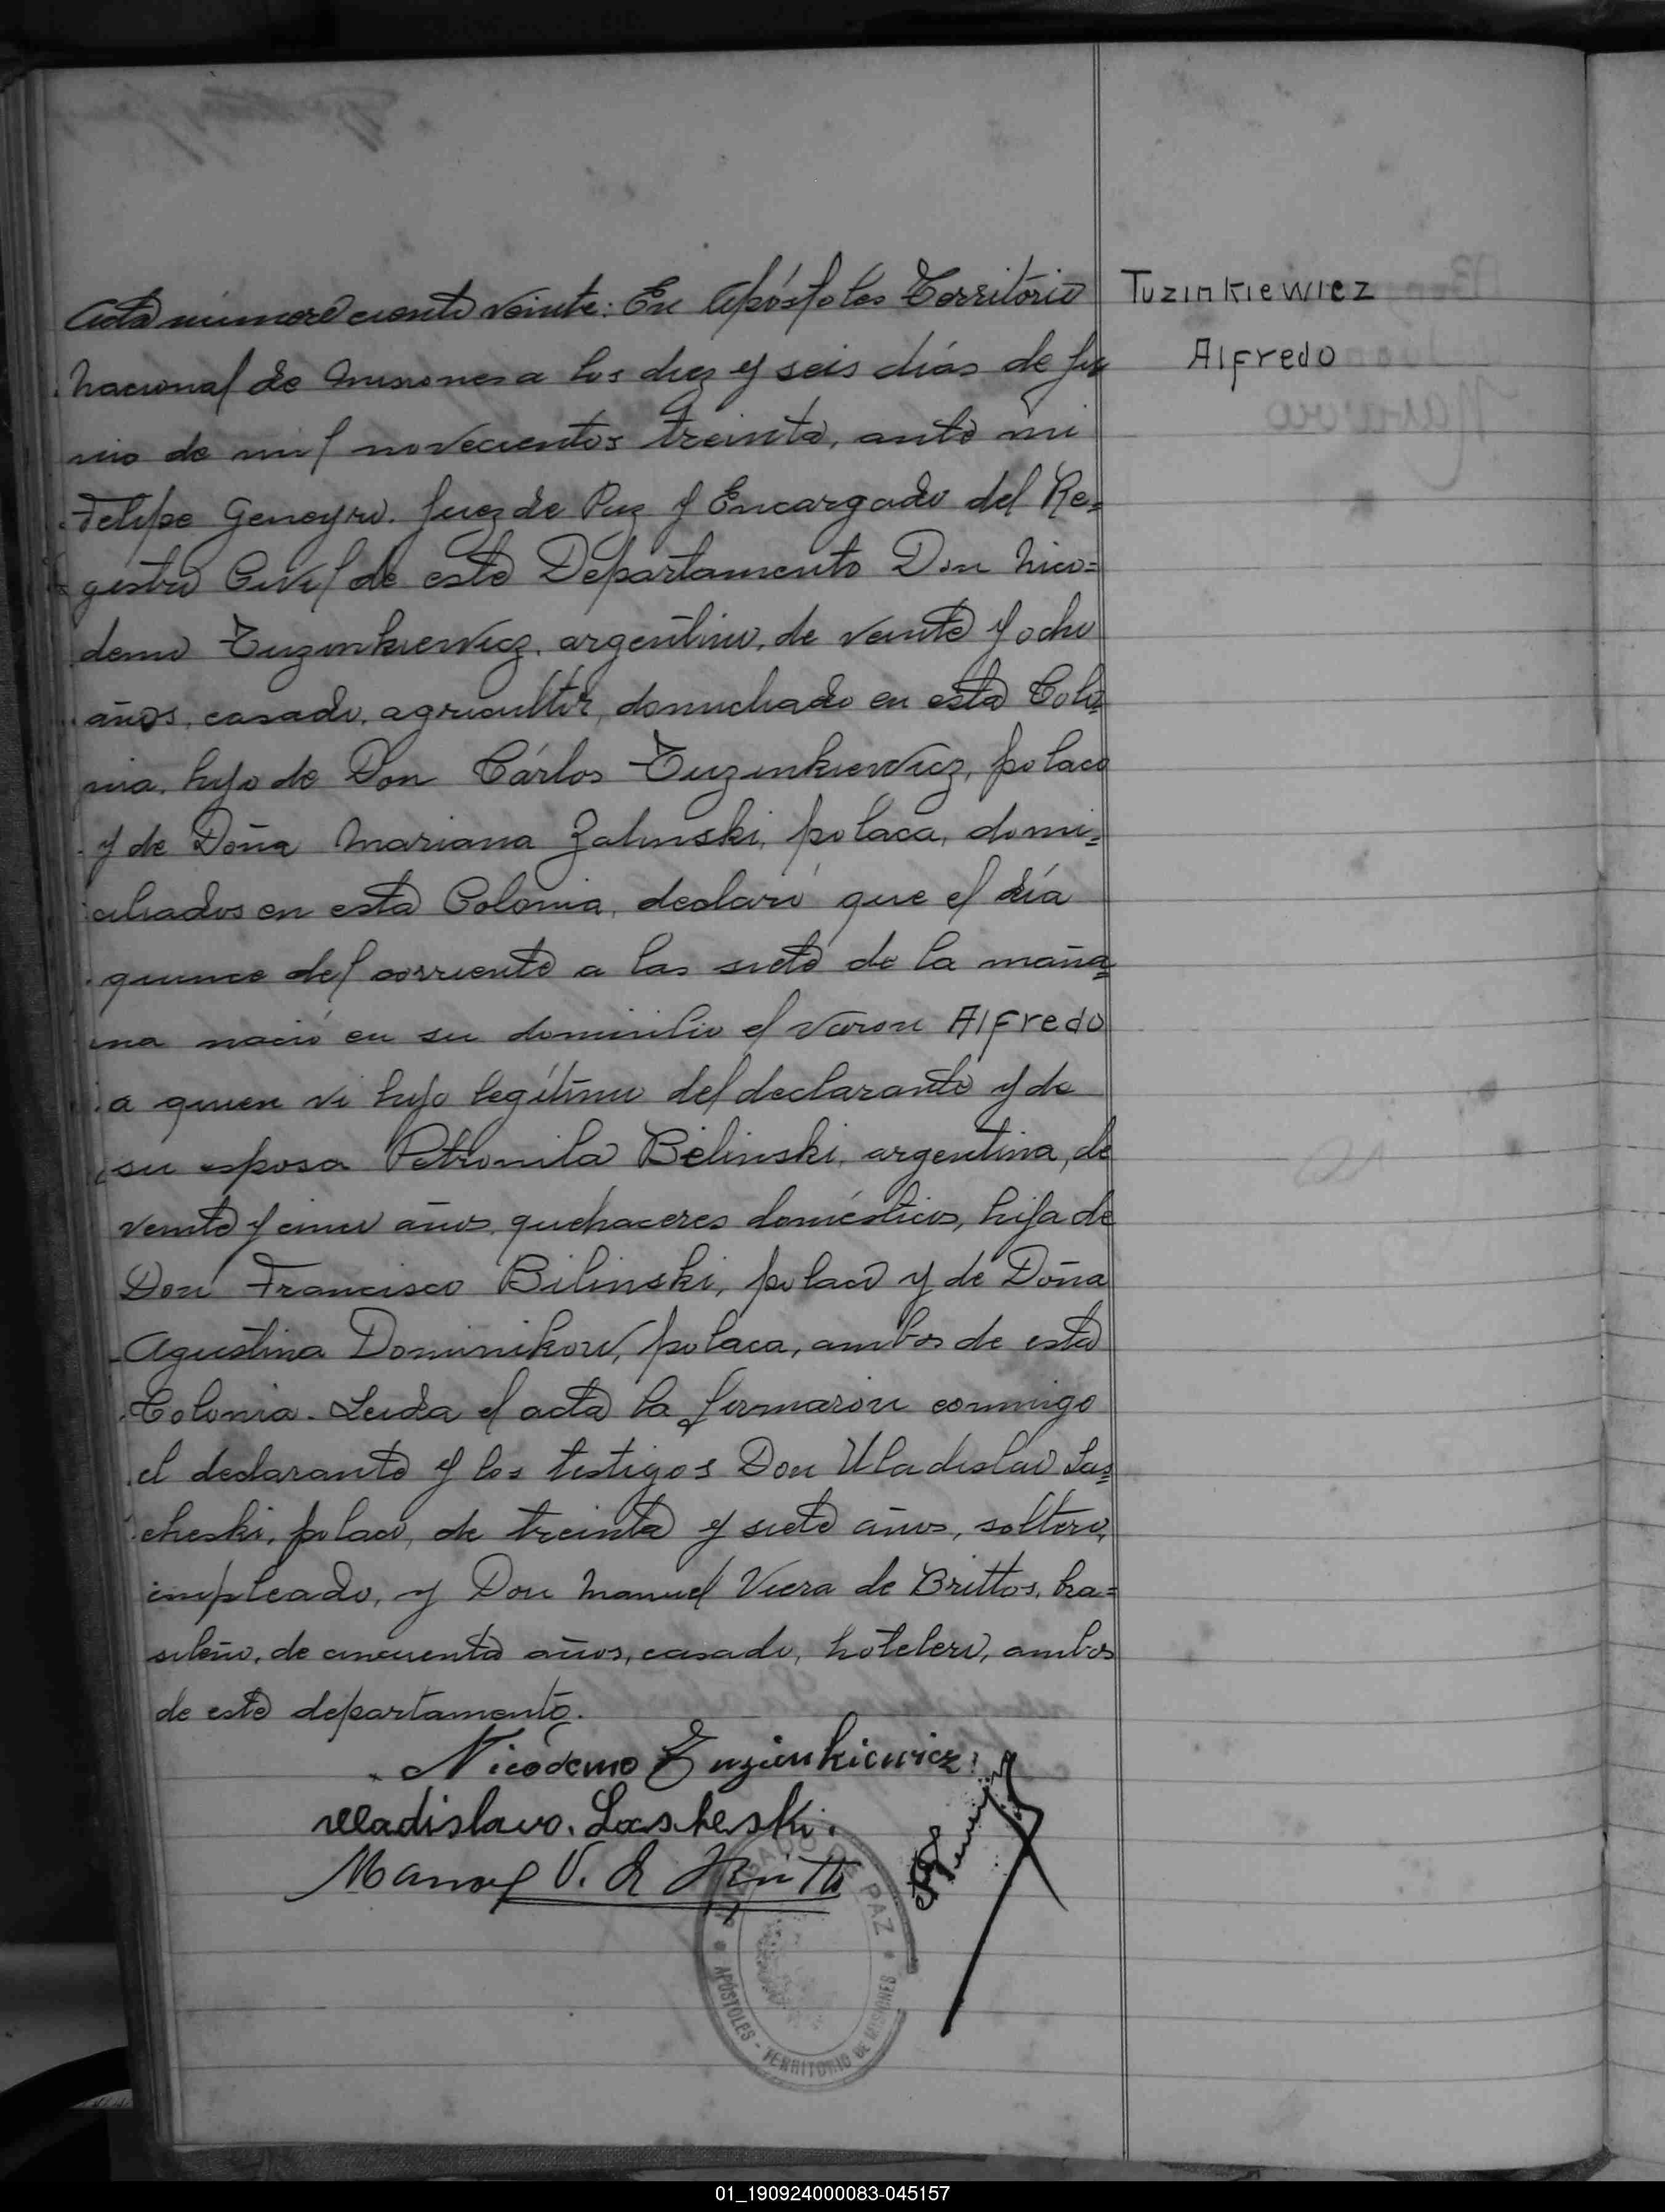 Acta número ciento veinte: En Apóstoles Territorio
Nacional de Misiones a los diez y seis días de Ju
nio de mil novecientos treinta, ante mi
Felipe Geneyro, Juez de Paz y Encargado del Re=
gistro Civil de este Departamento Don Nico=
demo Tuzinkiewicz, argentino, de veinte y ocho
años, casado, agricultor, domiciliado en esta Colo=
nia, hijo de Don Cárlos Tuzinkiewicz, polaco
y de Doña Mariana Zalinski, polaca, domi=
ciliados en esta Colonia, declaró que el día
quince del corriente a las siete de la maña=
na nació en su domicilio el varon Alfredo
a quien vi hijo legítimo del declarante y de
su esposa Petronila Bilinski, argentina, de
veinte y cinco años, quehaceres domésticos, hija de
Don Francisco Bilinski, polaco y de Doña
Agustina Dominikow, polaca, ambos de esta
Colonia. Leida el acta la firmaron conmigo
el declarante y los testigos Don Uladislao Las=
cheski, polaco, de treinta y siete años, soltero,
empleado, y Don Manuel Viera de Brittos, bra=
sileño, de cincuenta años, casado, hotelero, ambos
de este departamento.
Nicódemo Tuzinkiewicz
Uladislavo. Lascheski.
Manoel V. de Britto
PAZ
APÓSTOLES - TERRITORIO DE MISIONES
Tuzinkiewicz
Alfredo
01_190924000083-045157